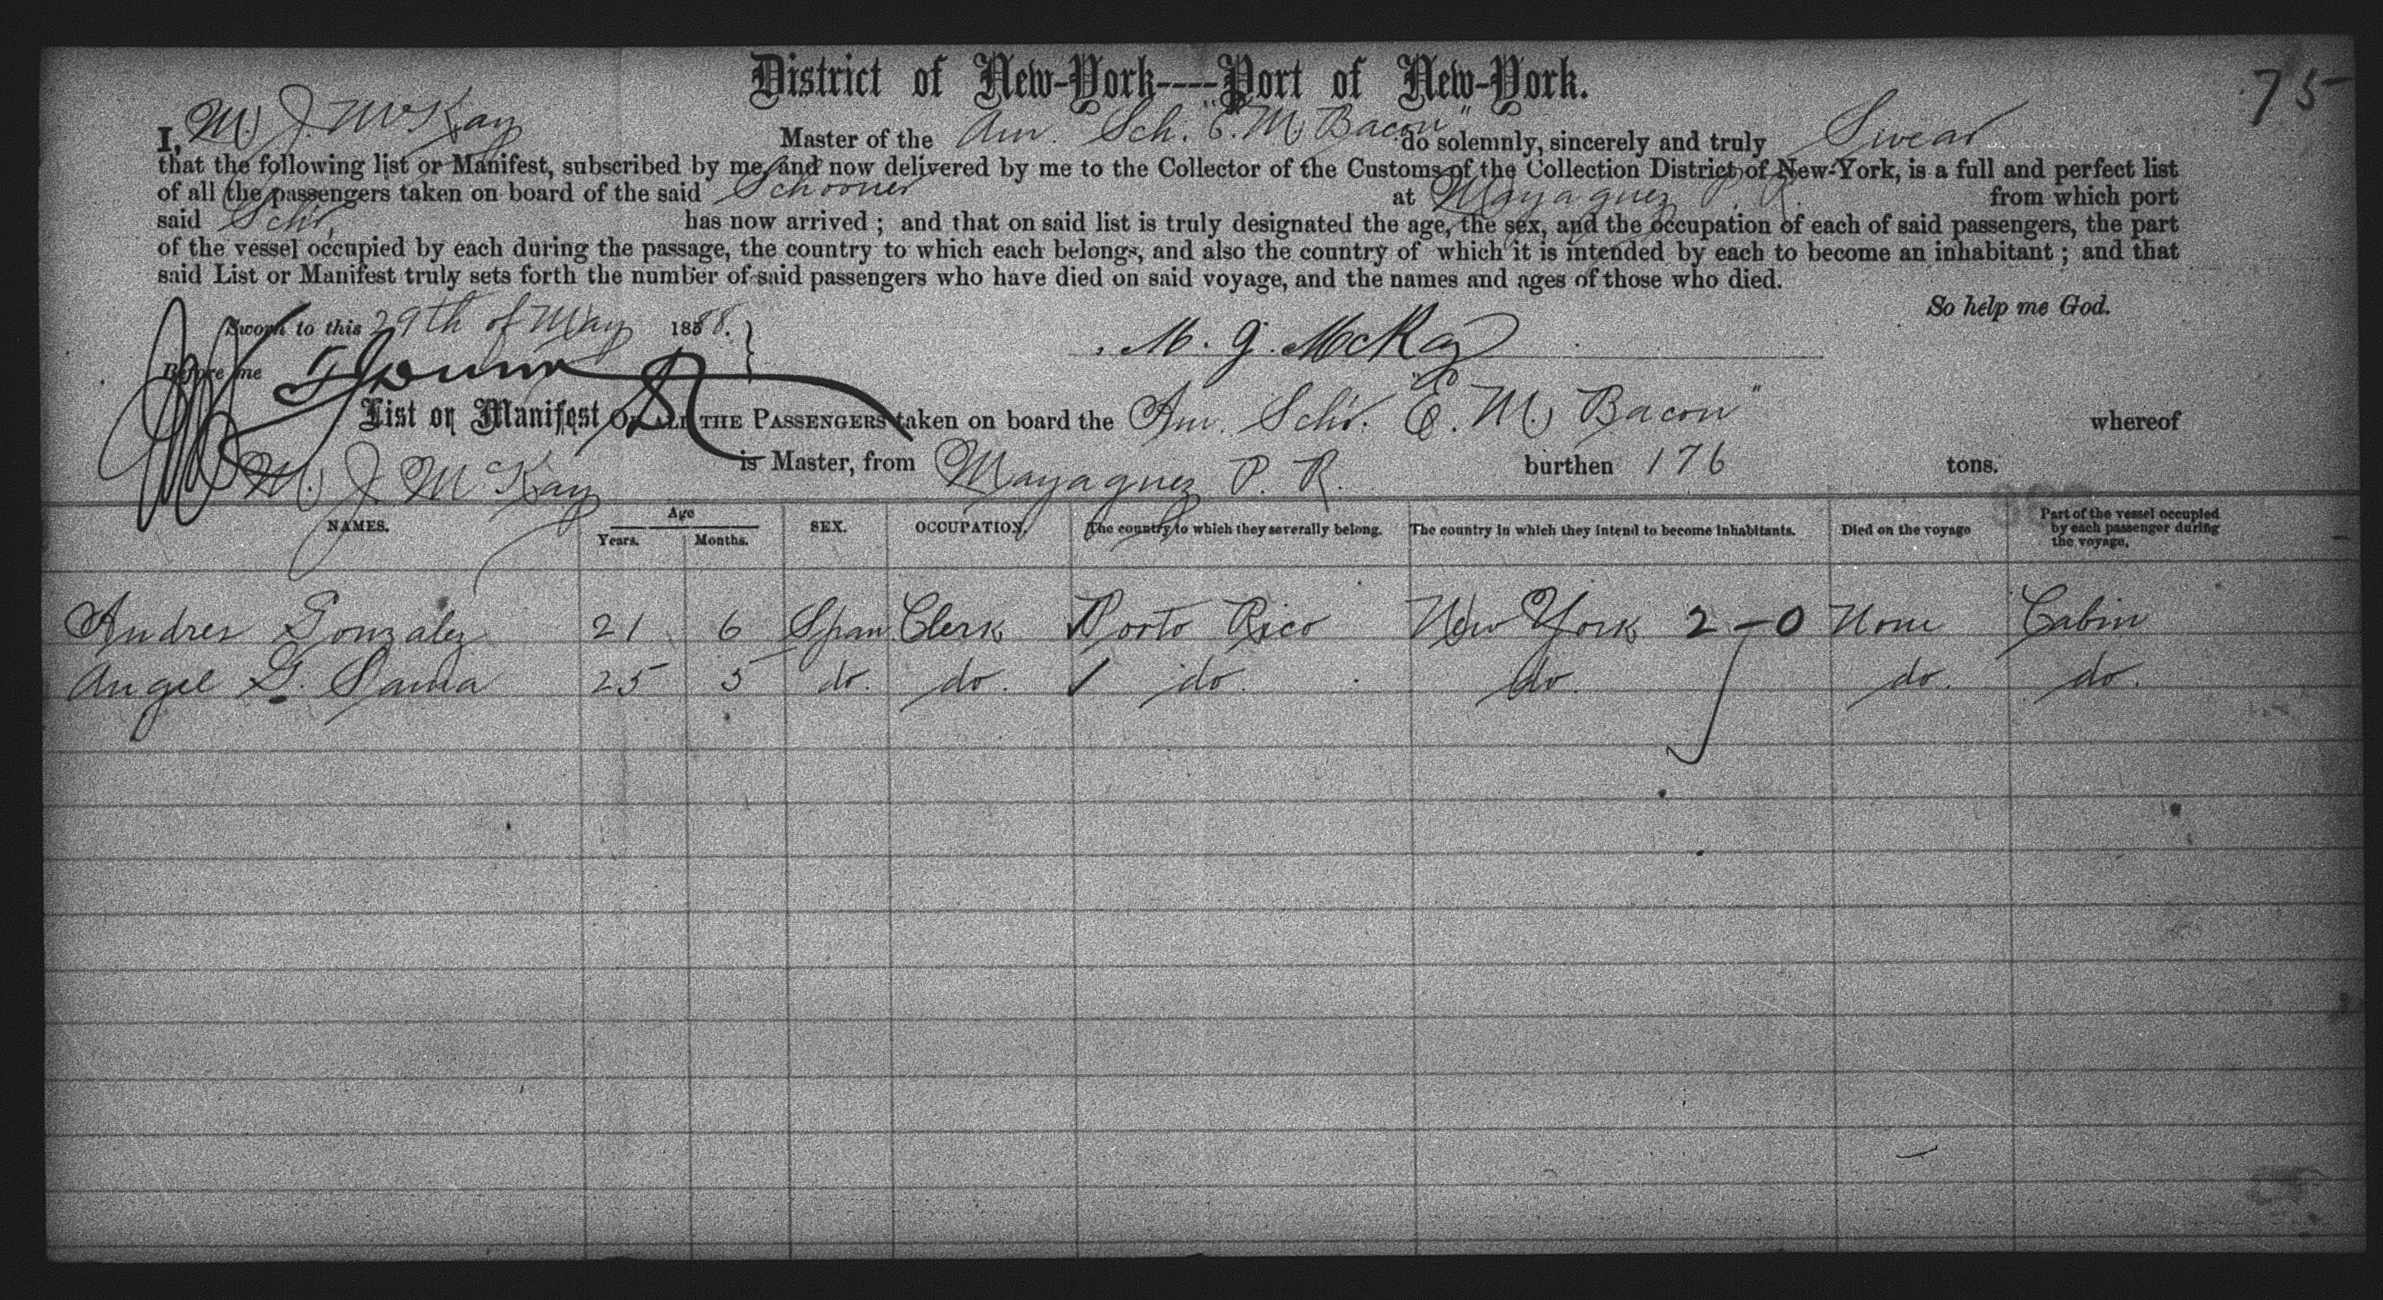 District of New-York----Port of New-York.
75
I, M. J. McKay Master of the Am. Sch. "E. M. Bacon" do solemnly, sincerely and truly Swear
that the following list or Manifest, subscribed by me, and now delivered by me to the Collector of the Customs of the Collection District of New-York, is a full and perfect list
of all the passengers taken on board of the said Schooner at Mayaguez P. R. from which port
said Schr, has now arrived ; and that on said list is truly designated the age, the sex, and the occupation of each of said passengers, the part
of the vessel occupied by each during the passage, the country to which each belongs, and also the country of which it is intended by each to become an inhabitant ; and that
said List or Manifest truly sets forth the number of said passengers who have died on said voyage, and the names and ages of those who died.
So help me God.
Sworn to this 29th of May 1888.
M. J. McKay
Before me
List or Manifest OF ALL THE PASSENGERS taken on board the Am. Schr. "E. M. Bacon" whereof
M. J. McKay is Master, from Mayaguez P. R. burthen 176 tons.
NAMES. Age Years. Months. SEX. OCCUPATION. The country to which they severally belong. The country in which they intend to become inhabitants. Died on the voyage Part of the vessel occupied by each passenger during the voyage.
Andres Gonzalez 21 6 Span Clerk Porto Rico New York 2-0 None Cabin
Angel G. Sama 25 5 do. do. do. do. do. do.